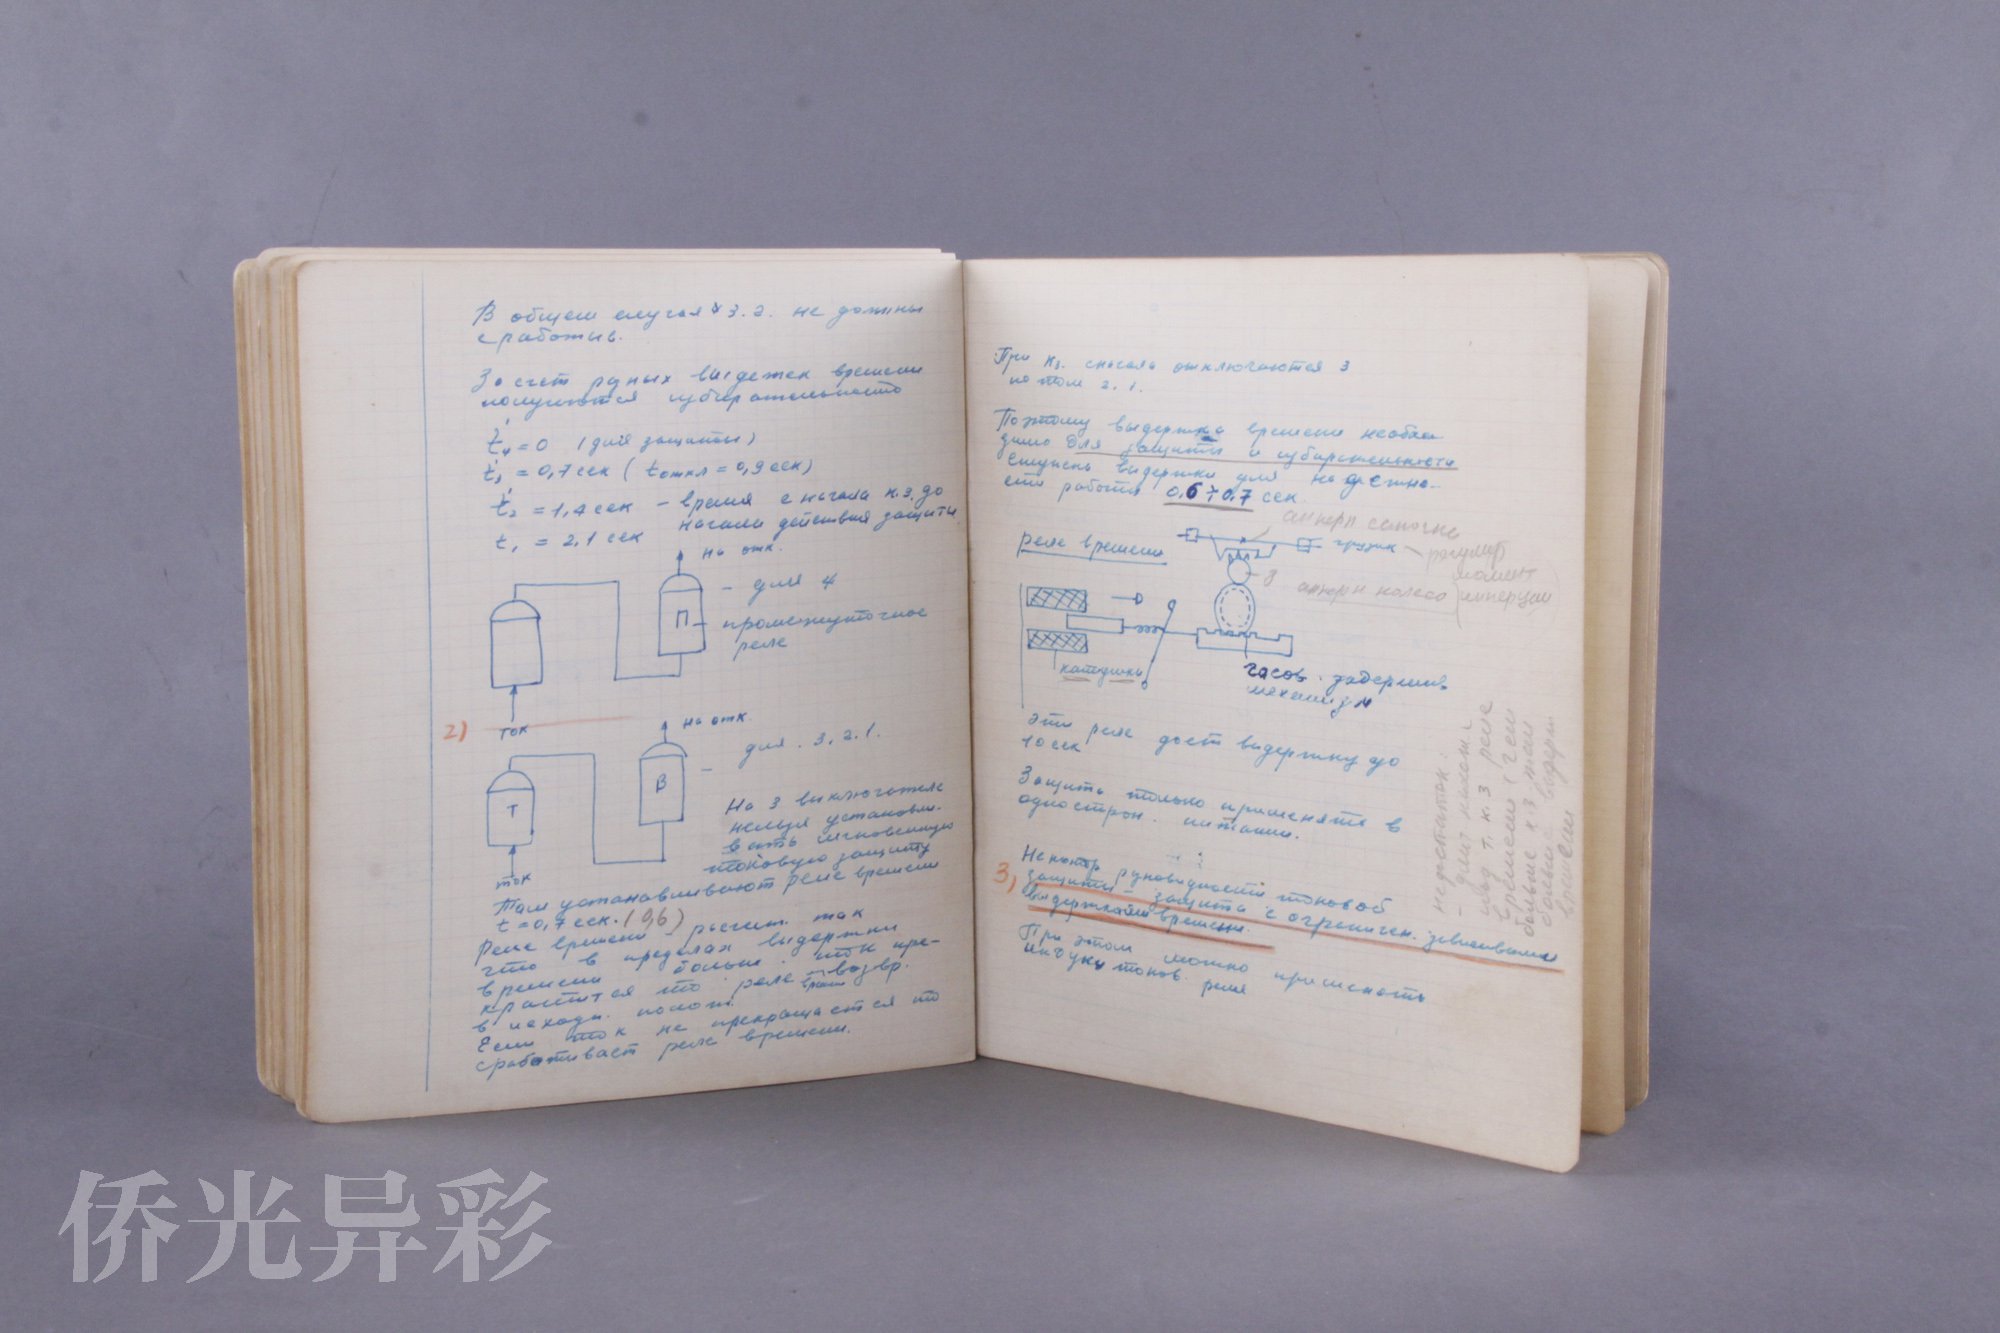 В общем случая 3.2. не должны
сработыв.
За счет разных выдежек времени
получаются избирательность
t'₄ = 0 (для защиты)
t'₃ = 0,7 сек ( tоткл = 0,9 сек)
t'₂ = 1,4 сек – время с начала к.з. до
начала действия защиты
t₁ = 2,1 сек
на отк.
– для 4
П – промежуточное
реле
ток
2)
на отк.
– для . 3. 2. 1.
Т
В
На 3 выключателе
нельзя установли-
вать мгновенную
токовую защиту
ток
Там устанавливают реле времени
t = 0,7 сек. (0,6)
Реле времени – расчит. так
что в пределах выдержки
времени ток пре-
кратится то реле возвр.
врем
в исходн. полож.
Если ток не прекращается то
сработивает реле времени.
При кз. сначала отключаются 3
потом 2. 1.
Поэтому выдержка времени необхо
димо для защиты и избирательности
Ступень выдержки для надежно-
сти работы 0,6 ÷ 0,7 сек.
реле времени
анкерн
грузик – регулир
момент
инерции
анкерн колесо
катушка
часов. задержив.
механизм
Эти реле дает выдержку до
10 сек
Защить только применять в
одностron. питании.
3)
токовой
защиты защита с ограничен. зависимым
выдержкой времени.
При этом можно применять
токов. реле
недостаток: